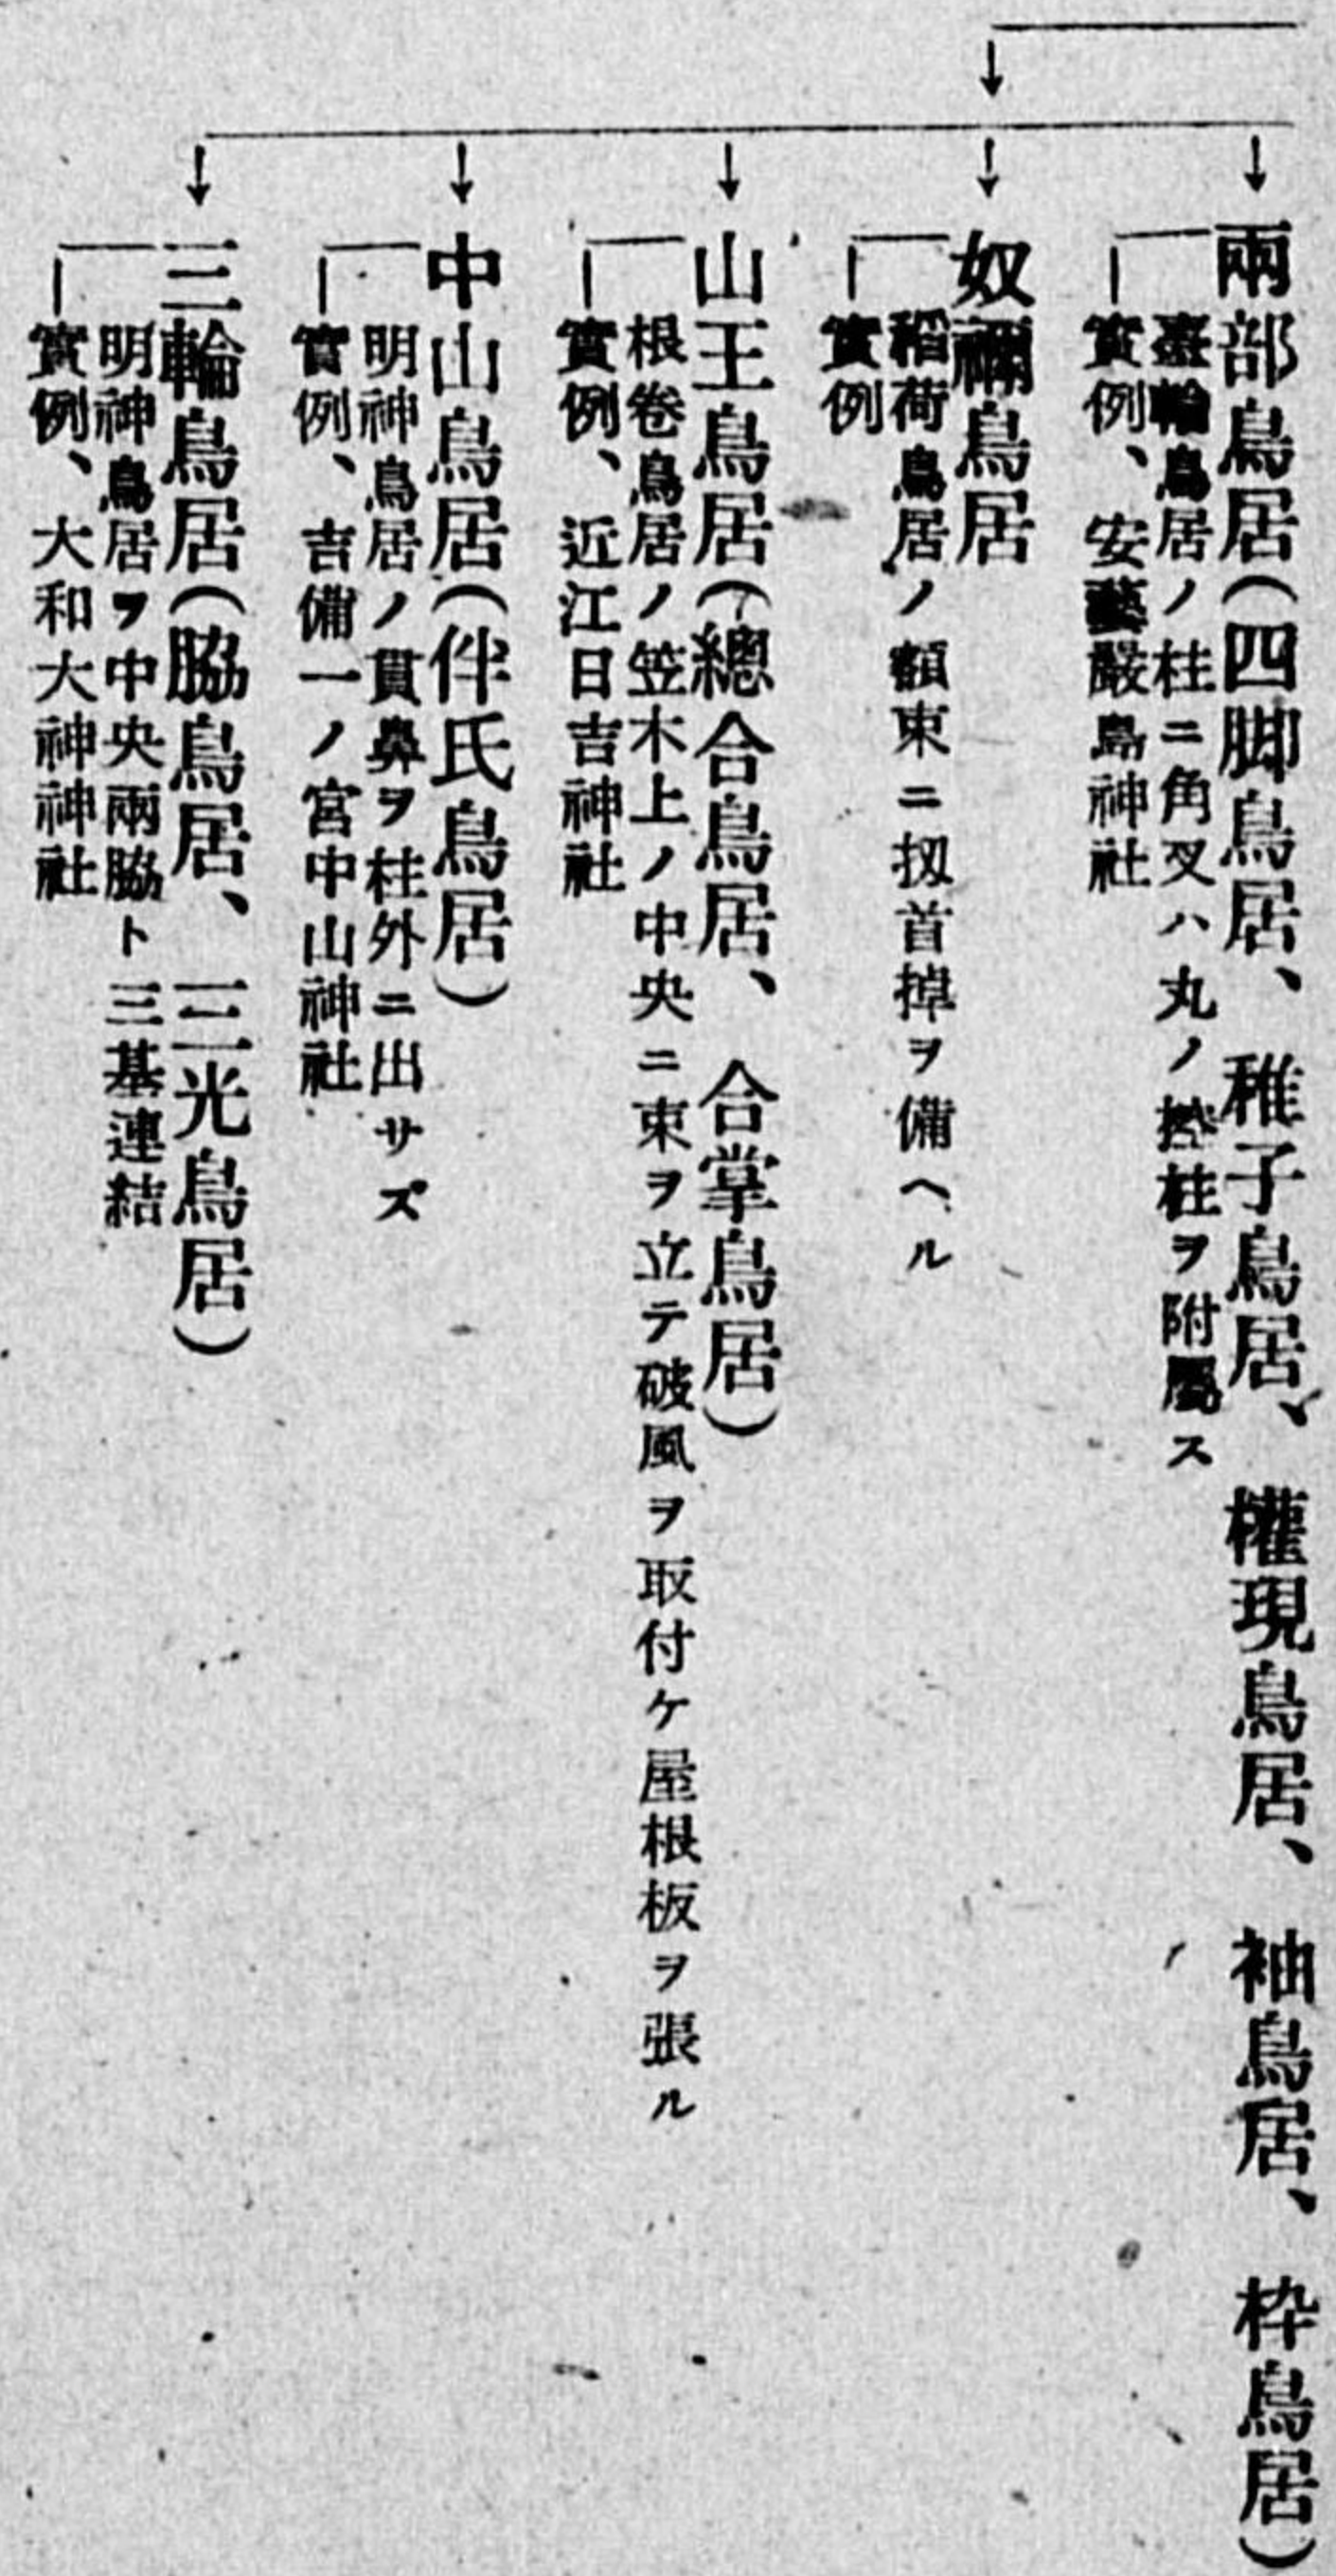 兩部鳥居(四脚鳥居、稚子鳥居、權現鳥居、袖鳥居、枠鳥居)
臺輪鳥居ノ柱ニ角叉ハ丸ノ控柱ヲ附屬ス
實例、安藝嚴島神社
奴禰鳥居
稻荷鳥居ノ額束ニ扠首掉ヲ備ヘル
實例
山王鳥居(總合鳥居、合掌鳥居)
根卷鳥居ノ笠木上ノ中央ニ束ヲ立テ破風ヲ取付ケ屋根板ヲ張ル
實例、近江日吉神社
中山鳥居(伴氏鳥居)
明神鳥居ノ貫鼻ヲ柱外ニ出サズ
實例、吉備一ノ宮中山神社
三輪鳥居(脇鳥居、三光鳥居)
明神鳥居ヲ中央兩脇ト三基連結
實例、大和大神神社